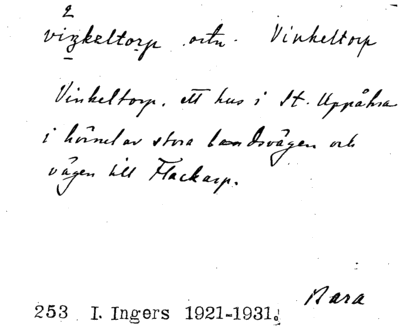 2
vizkeltorp ortn. Vinkeltorp
Vinkeltorp. ett hus i St. Uppåkra
i hörnet av stora landsvägen och
vägen till Flackarp.
Bara
253 I. Ingers 1921-1931.